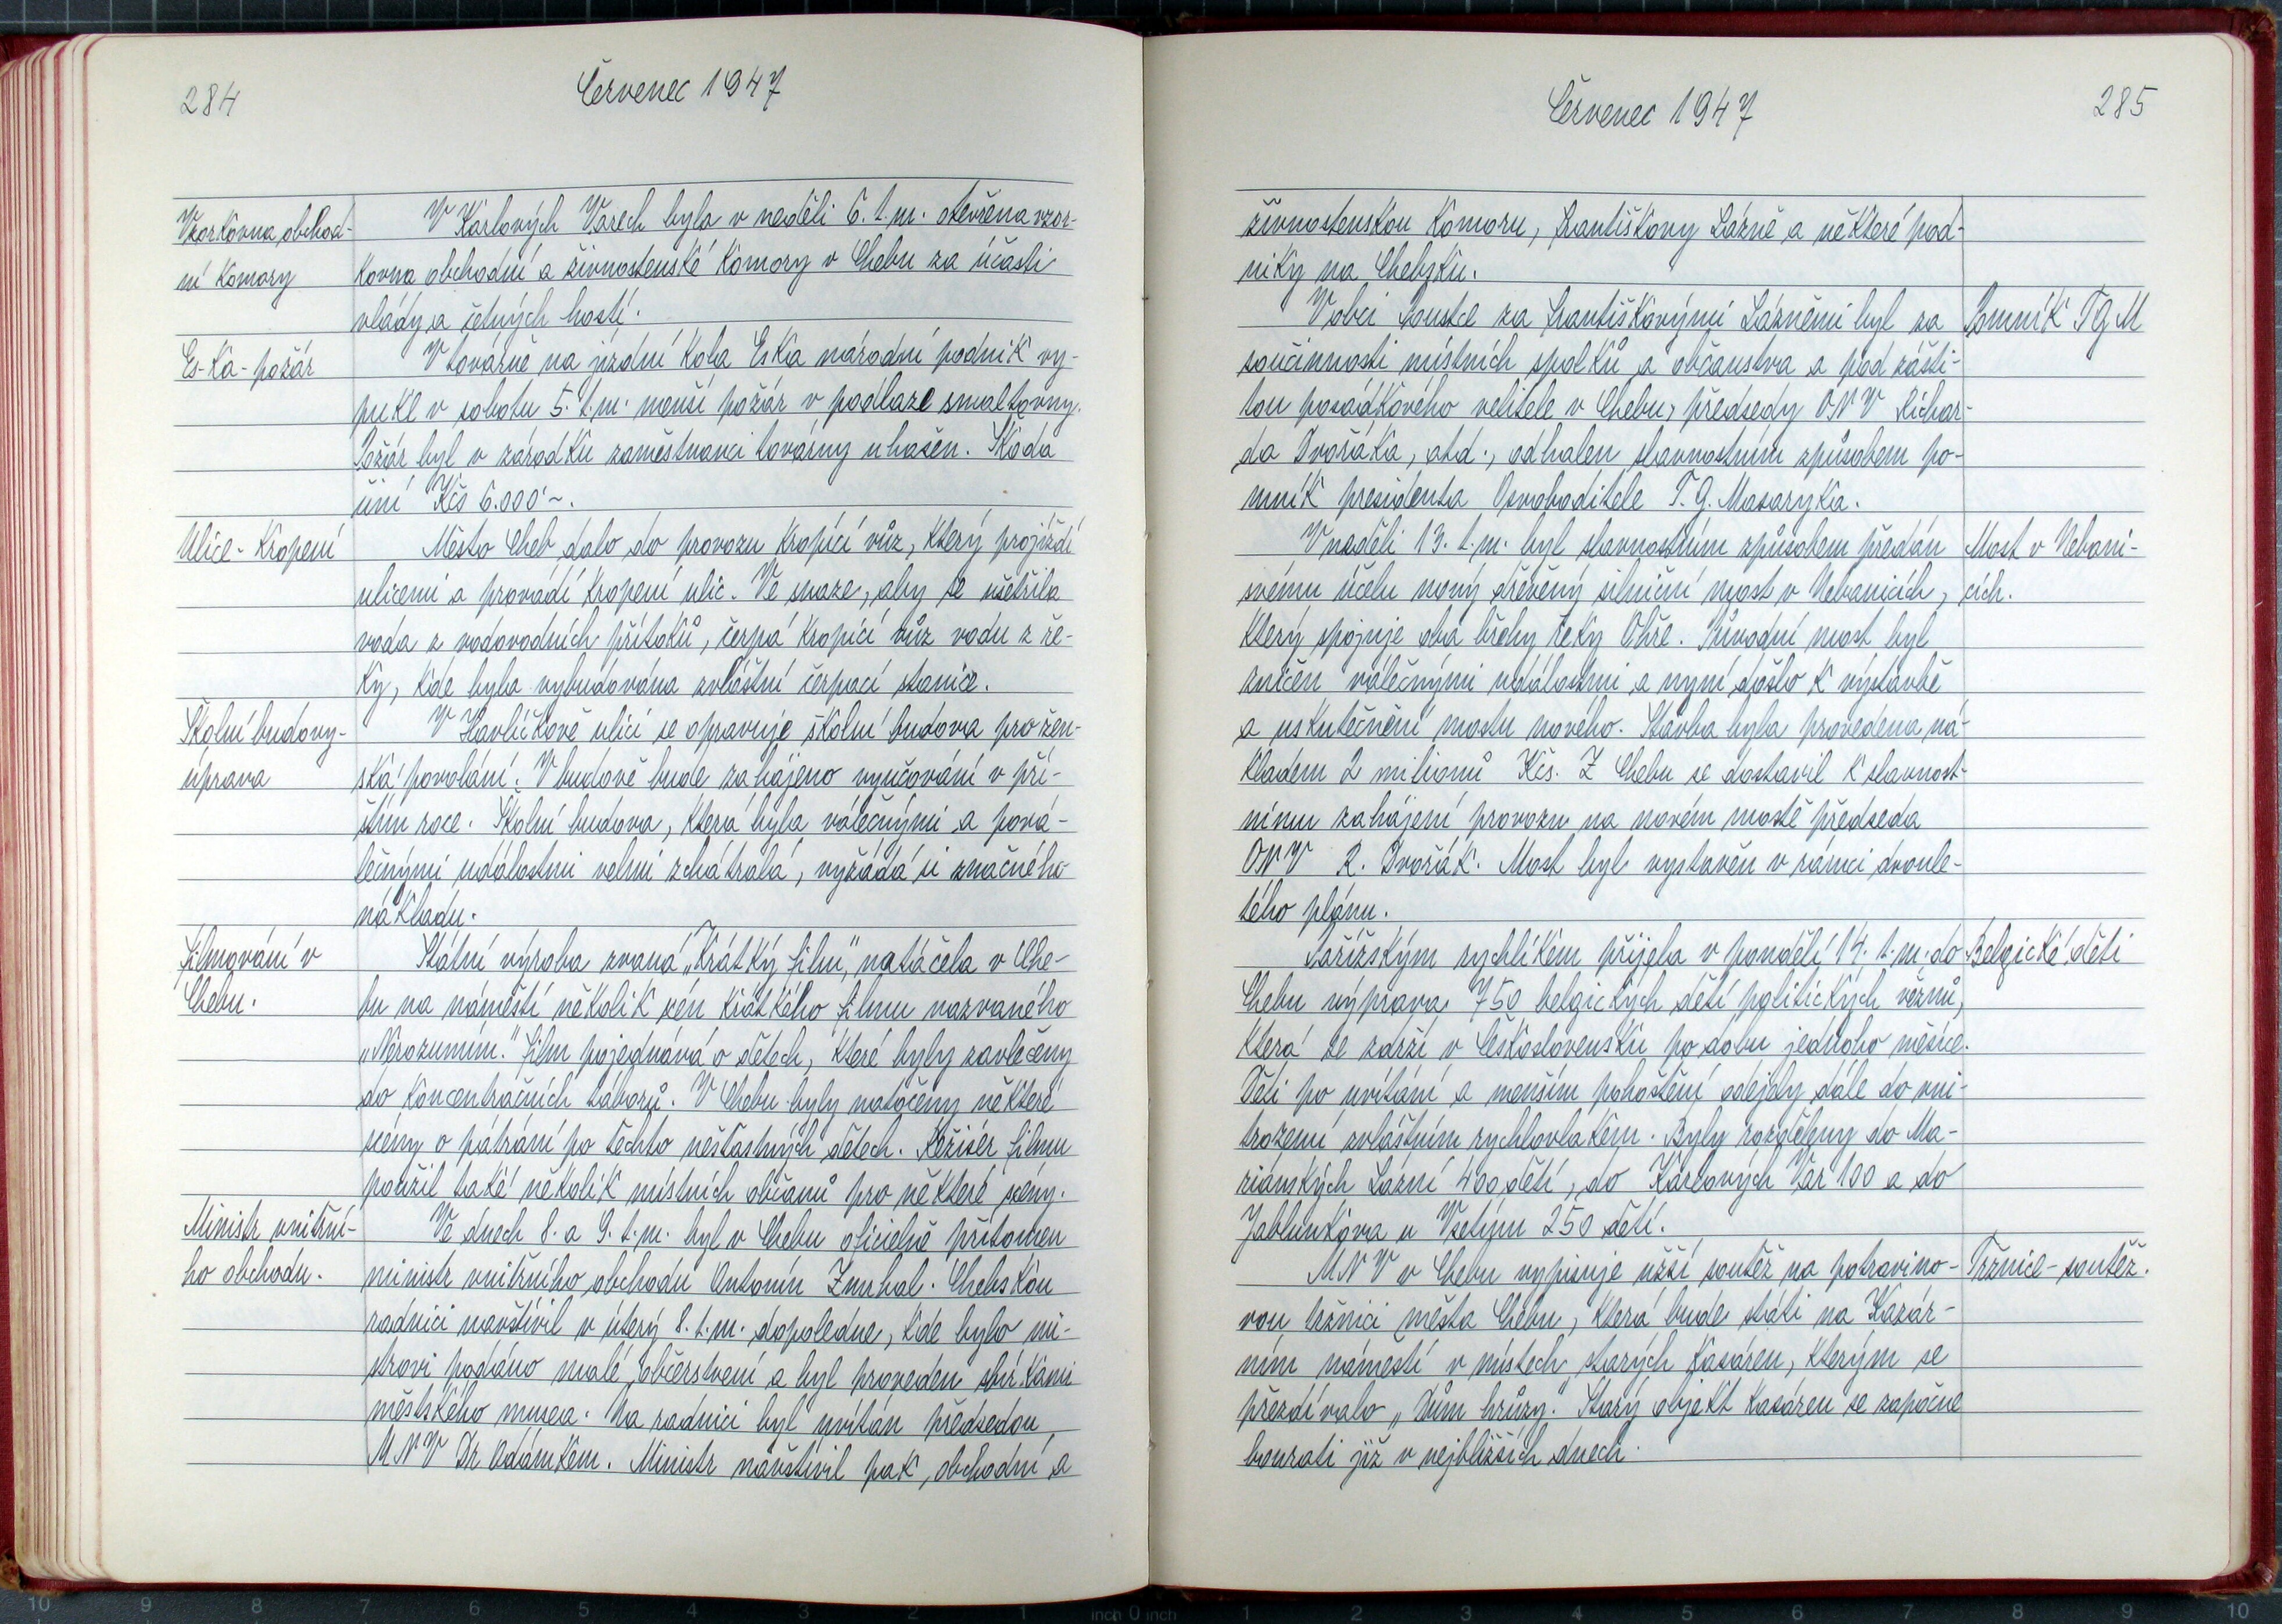 284
Červenec 1947
Vzorkovna obchod-
ní komory
V Karlových Varech byla v neděli 6. t. m. otevřena vzor-
kovna obchodní a živnostenské komory v Chebu za účasti
vlády a četných hostí.
Es-Ka-požár
V továrně na jízdní kola Eska národní podnik vy-
pukl v sobotu 5. t. m. menší požár v podlaze smaltovny.
Požár byl v zárodku zaměstnanci továrny uhašen. Škoda
činí Kčs 6.000'~.
Ulice - kropení
Město Cheb dalo do provozu kropící vůz, který projíždí
ulicemi a provádí kropení ulic. Ve snaze, aby se ušetřila
voda z vodovodních přítoků, čerpá kropící vůz vodu z ře-
ky, kde byla vybudována zvláštní čerpací stanice.
Školní budovy-
úprava
V Havlíčkově ulici se opravuje školní budova pro žen-
ská povolání. V budově bude zahájeno vyučování v pří-
štím roce. Školní budova, která byla válečnými a pová-
lečnými událostmi velmi zchátralá, vyžádá si značného
nákladu.
Filmování v
Chebu.
Státní výroba zvaná „Krátký film", natáčela v Che-
bu na náměstí několik scén krátkého filmu nazvaného
„Nerozumím." Film pojednává o dětech, které byly zavlečeny
do koncentračních táborů. V Chebu byly natočeny některé
scény o pátrání po těchto nešťastných dětech. Režisér filmu
použil také několik místních občanů pro některé scény.
Ministr vnitřní-
ho obchodu.
Ve dnech 8. a 9. t. m. byl v Chebu oficielně přítomen
ministr vnitřního obchodu Antonín Zmrhal. Chebskou
radnici navštívil v úterý 8. t. m. dopoledne, kde bylo mi-
strovi podáno malé občerstvení a byl proveden sbírkami
městského musea. Na radnici byl uvítán předsedou
MNV Dr Adámkem. Ministr navštívil pak obchodní a
Červenec 1947
285
živnostenskou komoru, Františkovy Lázně a některé pod-
niky na Chebsku.
V obci Poustce za Františkovými Lázněmi byl za
Pomník TGM
součinnosti místních spolků a občanstva a pod zášti-
tou posádkového velitele v Chebu, předsedy ONV Richar-
da Dvořáka, atd., odhalen slavnostním způsobem po-
mník presidenta Osvoboditele T. G. Masaryka.
V neděli 13. t. m. byl slavnostním způsobem předán
Most v Nebani-
svému účelu nový dřevěný silniční most v Nebanicích,
cích.
který spojuje oba břehy řeky Ohře. Původní most byl
zničen válečnými událostmi a nyní došlo k výstavbě
a uskutečnění mostu nového. Stavba byla provedena ná-
kladem 2 milionů Kčs. Z Chebu se dostavil k slavnost-
nímu zahájení provozu na novém mostě předseda
ONV R. Dvořák. Most byl vystavěn v rámci dvoule-
tého plánu.
Pařížským rychlíkem přijela v pondělí 14. t. m. do
Belgické děti
Chebu výprava 750 belgických dětí politických vězňů,
která se zdrží v Československu po dobu jednoho měsíce.
Děti po uvítání a menším pohoštění odejely dále do vni-
trozemí zvláštním rychlovlakem. Byly rozděleny do Ma-
riánských Lázní 400 dětí, do Karlových Var 100 a do
Jablunkova u Vsetínu 250 dětí.
MNV v Chebu vypisuje užší soutěž na potravino-
Tržnice - soutěž.
vou tržnici města Chebu, která bude státi na Kasár-
ním náměstí v místech starých kasáren, kterým se
přezdívalo „Dům hrůzy." Starý objekt kasáren se započne
bourati již v nejbližších dnech.